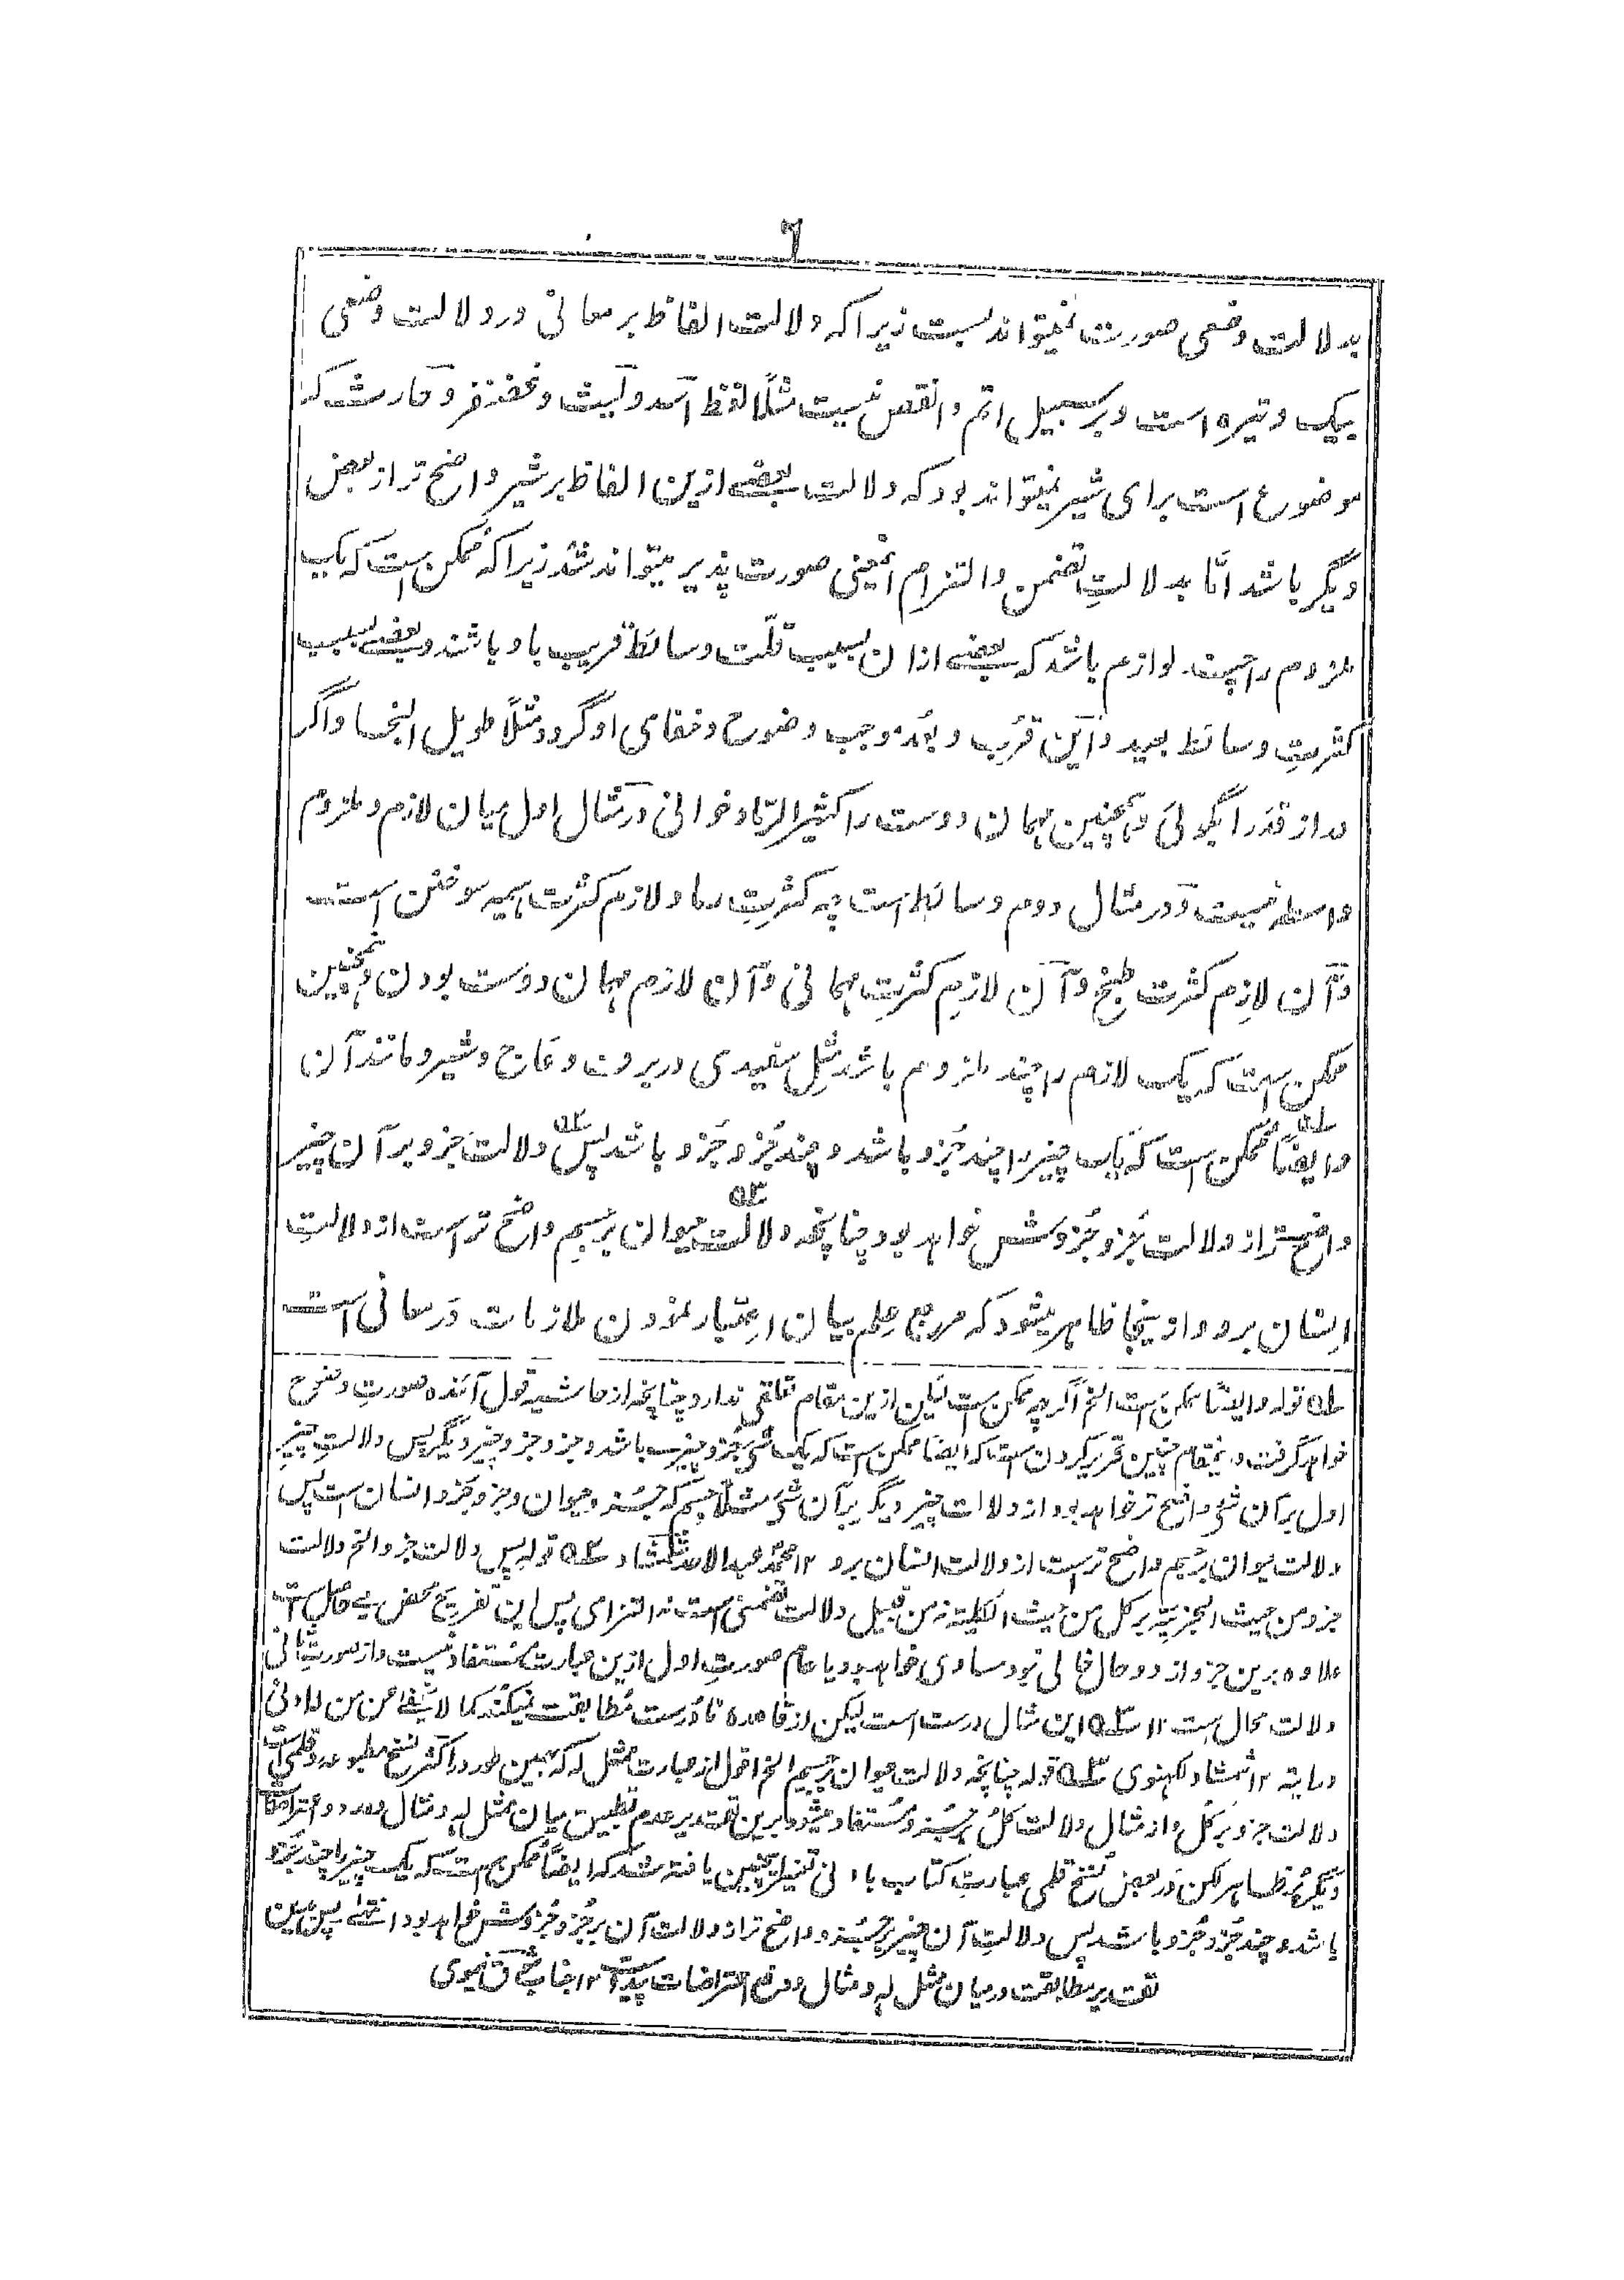 ۶
بدلالت وضعی صورت نمیتواند بست زیرا که دلالت الفاظ بر معانی در دلالت وضعی
بیک وتیره است و بر سبیل اتم و انقص نیست مثلاً لفظ اسد و لیث و غضنفر و حارث که
موضوع است برای شیر نمیتواند بود که دلالت بعضے ازین الفاظ بر شیر واضح تر از بعض
دیگر باشد امّا به دلالتِ تضمن و التزام این معنی صورت پذیر میتواند شد زیرا که ممکن است که یک
ملزوم را چند لوازم باشد که بعضے ازان بسبب قلّت وسائط قریب باو باشند و بعضے بسبب
کثرتِ وسائط بعید و این قُرب و بُعد موجب وضوح و خفای او گردد مثلاً طویل النجاد اگر
دراز قد را گوئی و همچنین مهمان دوست را کثیر الرّماد خوانی در مثال اول میان لازم و ملزوم
واسطه نیست و در مثال دوم وسائط است چه کثرتِ رماد لازم کثرت هیمه سوختن است
و آن لازم کثرت طبخ و آن لازم کثرتِ مهمانی و آن لازم مهمان دوست بودن و همچنین
ممکن است که یک لازم را چند ملزوم باشد مثل سفیدی در برف و عاج و شیر و مانند آن
و ایضاً ممکن است که یک چیز را چند جُزو باشد و چند جُزوِ جُزو باشد پس دلالت جزو بر آن چیز
واضح تر از دلالت جُزوِ جُزوش خواهد بود چنانچه دلالت حیوان بر جسم واضح تر است از دلالتِ
انسان برو و از ینجا ظاهر میشود که مرجع علم بیان اعتبار نمودن ملازمات در معانی است
۱ه قوله و ایضاً ممکن است الخ اگرچه ممکن است لیکن ازین مقام تعلقی ندارد چنانچه از حاشیه قول آئنده صورت وضوح
خواهد گرفت درین مقام چنین تقریر کردن است که ایضاً ممکن است که یک شئ جُزوِ چیزے باشد و جزوِ جزوِ چیز دیگر پس دلالتِ چیز
اول بر آن شئ واضح تر خواهد بود از دلالت چیز دیگر بر آن شئ مثلاً جسم که جزو حیوان و جزوِ جزوِ انسان است پس
دلالت حیوان بر جسم واضح تر است از دلالت انسان برو ۱۲ محمد عبد الاحد شمشاد ۲ه قوله پس دلالت جزو الخ دلالت
جزو من حیث الجزئیة بر کل من حیث الکلیة نه من قبیل دلالت تضمنی است نه التزامی پس این تفریع محض بے حاصل است
علاوه برین جزو از دو حال خالی نبود مساوی خواهد بود یا عام صورتِ اول ازین عبارت مستفاد نیست و از صورتِ ثانی
دلالت محال است ۱۲ ۳ه این مثال درست است لیکن از قاعده نادرست مطابقت نمیکند کما لا یخفے علی من له ادنی
درایة ۱۲ شمشاد لکهنوی ۳ه قوله چنانچه دلالت حیوان بر جسم الخ اقول از عبارت ممثل له که بهمین طور در اکثر نسخ مطبوعه و قلمی است
دلالت جزو بر کل و از مثال دلالت کل بر جزو مستفاد میشود برین تقدیر عدم تطبیق میان ممثل له و مثال و ورود اعتراضات
دیگر ظاهر لکن در بعض نسخ قلمی عبارتِ کتاب بادنی تغییر چنین یافته شد که ایضاً ممکن است که یک چیز را چند جُزو
باشد و چند جُزوِ جُزو باشد پس دلالتِ آن چیز بر جزو واضح تر از دلالت آن بر جُزوِ جُزوش خواهد بود انتهے پس برین
تقدیر مطابقت درمیان ممثل له و مثال و دفع اعتراضات پیداست ۱۲ جناب شوق نیموی